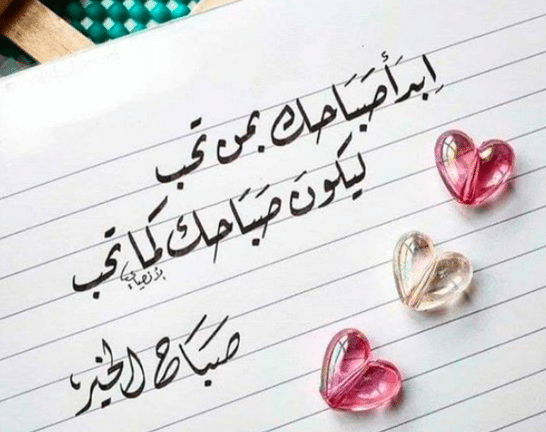 اِبدَأ صَبَاحك بمن تحب
ليكونَ صَبَاحك كما تحب
صَبَاح الخير